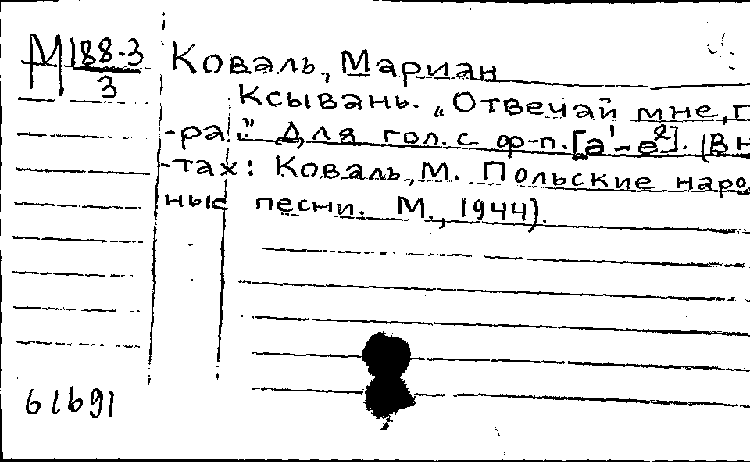 М 188-3
3
Коваль, Мариан
Ксывань. „Отвечай мне, п
-ра." Для гол. с ф-п. [a¹-e²]. (В н
-тах: Коваль, М. Польские наро
ные песни. М., 1944).
61691